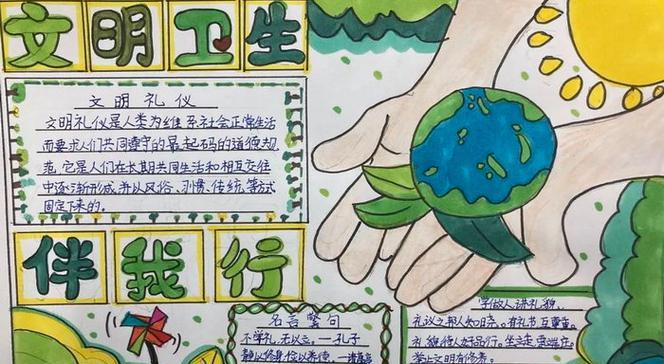 文明卫生
文明礼仪
文明礼仪是人类为维系社会正常生活
而要求人们共同遵守的最起码的道德规
范,它是人们在长期共同生活和相互交往
中逐渐形成,并以风俗、习惯、传统、等方式
固定下来的。
伴我行
名言警句
不学礼,无以立。—孔子
静以修身,俭以养德,—诸葛亮
学做人,讲礼貌,
礼仪之邦人知晓。有礼书互尊重。
礼貌待人好品行。坐立走要端庄
举止文明有修养。